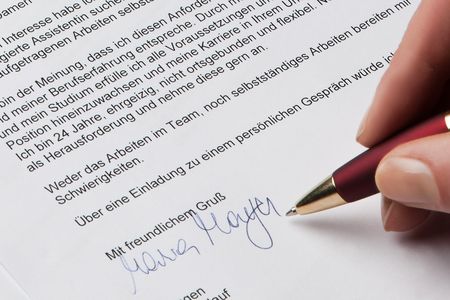 Interesse habe ich
Assistentin suchen
aufgetragenen Arbeiten selbst
bin der Meinung, dass ich diesen Anford
meiner Berufserfahrung entspreche. Durch m
und mein Studium erfülle ich alle Voraussetzungen
Position hineinzuwachsen und meine Karriere in Ihrem Un
Ich bin 24 Jahre, ehrgeizig, nicht ortsgebunden und flexibel. N
als Herausforderung und nehme diese gern an.
Weder das Arbeiten im Team, noch selbstständiges Arbeiten bereiten mi
Schwierigkeiten.
Über eine Einladung zu einem persönlichen Gespräch würde ic
Mit freundlichem Gruß
Maria Mayer
ngen
auf